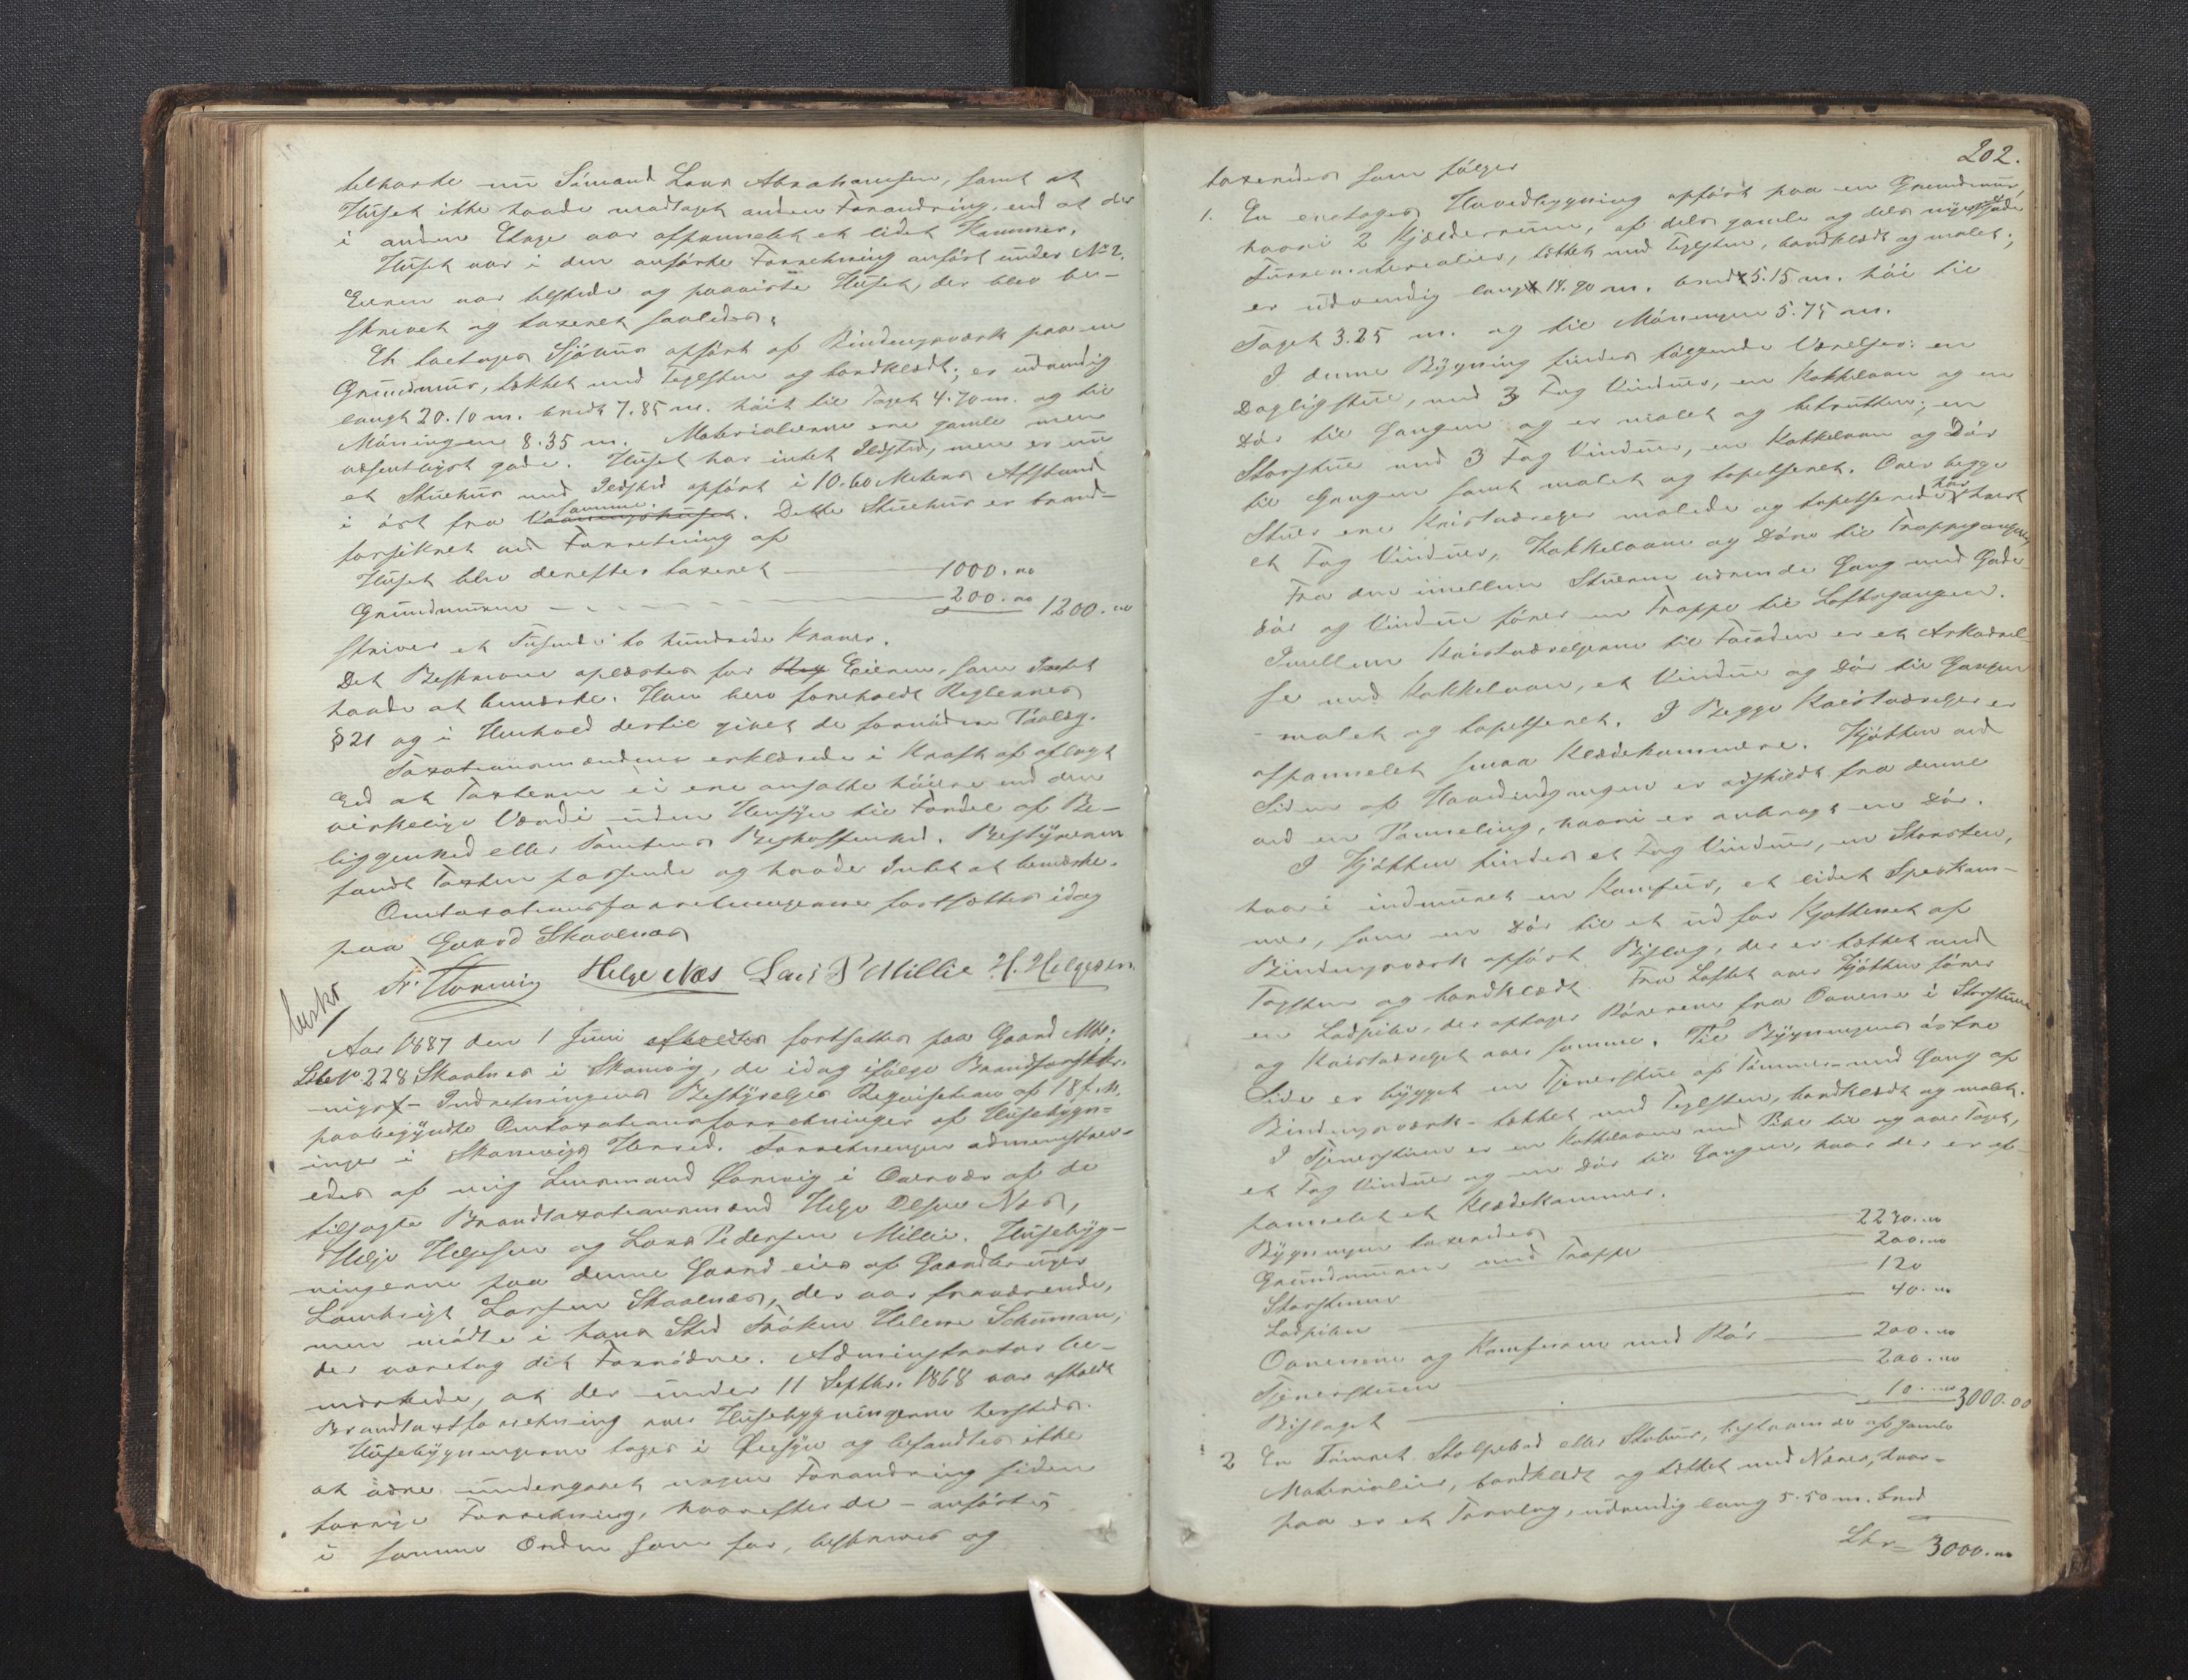 tilhørte nu Sømand Lars Abrahamsen, samt at
Huset ikke havde modtaget anden Forandring, end at der
i anden Etage var afpannelet et lidet Kammer.
Huset var i den anførte Forretning anført under No 2.
Eieren var tilstede og paaviste Huset, der blev be-
skrevet og taxeret saaledes:
Et toetages Sjøhus opført af Bindingsværk paa en
Grundmur, tækket med Teglsten og bordklædt; er udvendig
langt 20.10 m. bredt 7.85 m. høit til Taget 4.70 m. og til
Møningen 8.35 m. Materialierne ere gamle men
væsentligst gode. Huset har intet Ildsted, men er nu
et Stuehus med Ildsted opført i 10.60 Meters Afstand
i øst fra Vaaningshuset samme. Dette Stuehus er brand-
forsikret ved Forretning af
Huset blev derefter taxeret 1000.00
Grundmuren 200.00 1200.00
skriver et Tusinde to hundrede Kroner.
Det Beskrevne oplæstes for Eieren, som Intet
havde at bemærke. Han blev foreholdt Reglernes
§ 21 og i Henhold dertil givet de fornødne Paalæg.
Taxationsmændene erklærede i Kraft af aflagt
Eed at Taxterne ei ere ansatte høiere end den
virkelige Værdi uden Hensyn til Fordel af Be-
liggenhed eller Tomtens Beskaffenhed. Bestyreren
fandt Taxten passende og havde Intet at bemærke.
Omtaxationsforretningerne fortsættes idag
paa Gaard Skaalnes
Helge Næs Lars P Millie H. Helgesen
beskr
Aar 1887 den 1 Juni afholdtes fortsattes paa Gaard Mtr:
LbNo 228 Skaalnes i Skonevig, de idag ifølge Brandforsikr-
nings- Indretningens Bestyrelses Reqvisition af 18 f. M.
paabegyndte Omtaxationsforretninger af Husebygn-
inger i Skonevigs Herred. Forretningen administrer-
edes af mig Lensmand Hornvig i Overvær af de
tilsagte Brandtaxationsmænd Helge Olsen Næs,
Helje Helgesen og Lars Pedersen Millie. Husebyg-
ningerne paa denne Gaard eies af Gaardbruger
Lambrigt Larsen Skaalnes, der var fraværende,
men mødte i hans Sted Frøken Helene Schuman,
der varetog det Fornødne. Administrator be-
mærkede, at der under 11 Septbr. 1868 var afholdt
Brandtaxtforretning over Husebygningerne hersteds.
Husebygningerne toges i Øiesyn og befandtes ikke
at være undergaaet nogen Forandring siden
forrige Forretning, hvorefter de anførtes
i samme Orden som før, beskreves og
202.
taxeredes som følger
1. En enetages Hovedbygning opført paa en Grundmur,
hvori 2 Kjælderrum, af dels gamle og dels nye gode
Furrematerialier, tækket med Teglsten, bordklædt og malet;
er udvendig langt 14.90 m. bredt 5.15 m. høi til
Taget 3.25 m. og til Møningen 5.75 m.
I denne Bygning findes følgende Værelser: en
Dagligstue, med 3 Fag Vinduer, en Kakkelovn og en
Dør til Gangen og er malet og betrukken; en
Storstue med 3 Fag Vinduer, en Kakkelovn og Dør
til Gangen samt malet og tapetseret. Over begge
Stuer ere Kvistværelser malede og tapetserede har hvert
et Fag Vinduer, Kakkelovne og Døre til Trappegangen
Fra den imellem Stuerne værende Gang med Gade
dør og Vindue fører en Trappe til Loftsgangen.
Imellem Kvistværelserne til Facaden er et Arkværel-
se med Kakkelovn, et Vindue og Dør til Gangen
malet og tapetseret. I Begge Kvistværelser er
afpannelet smaa Klædekammere. Kjøkken ved
Siden af Hovedindgangen er adskildt fra denne
ved en Panneling, hvori er anbragt en Dør.
I Kjøkken findes et Fag Vinduer, en Skorsten,
hvori indmuret en Komfur, et lidet Speskam-
mer, som en Dør til et ud for Kjøkkenet af
Bindingsværk opført Bislag, der er tækket med
Tagsten og bordklædt. Fra Loftet over Kjøkken fører
en Ladpibe, der optager Rørerne fra Ovnene i Storstuen
og Kvistværelset over samme. Til Bygningens østre
Side er bygget en Tjenerstue af Tømmer med Gang af
Bindingsværk tækket med Teglsten, bordklædt og malet.
I Tjenerstuen er en Kakkelovn med Pibe til og over Taget,
et Fag Vinduer og en Dør til Gangen, hvor der er af-
pannelet et Klædekammer.
Bygningen taxeredes 2230.00
Grundmuren med Trappe 200.00
Skorstenen 120
Ladpiben 40.00
Ovnene og Komfuren med Rør 200.00
Tjenerstuen 200.00
Bislaget 10.00 3000.00
2 En Tømret Stolpebod eller Stabur, bestaaende af gamle
Materialier, bordklædt og tækket med Næver, hvor-
paa er et Torvlag, udvendig lang 5.50 m. bred
3000.00